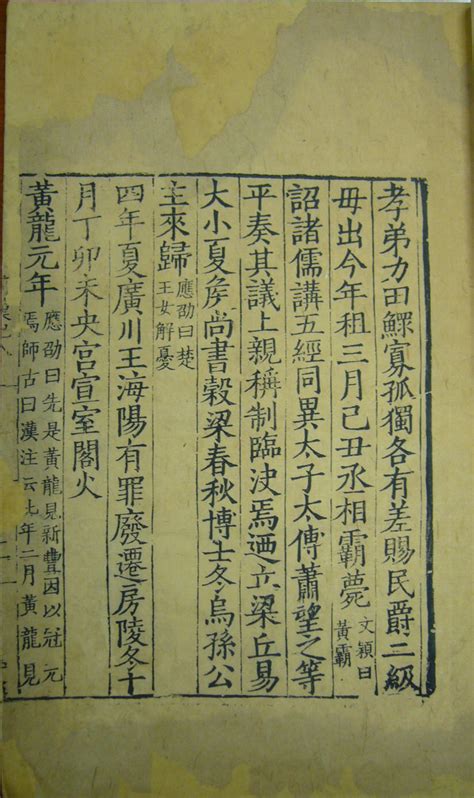 孝弟力田鰥寡孤獨各有差賜民爵二級
毋出今年租三月己丑丞相霸薨文穎曰黃霸
詔諸儒講五經同異太子太傅蕭望之等
平奏其議上親稱制臨決焉迺立梁丘易
大小夏矦尚書穀梁春秋博士冬烏孫公
主來歸應劭曰楚王女解憂
四年夏廣川王海陽有罪廢遷房陵冬十
月丁卯未央宮宣室閣火
黃龍元年應劭曰先是黃龍見新豐因以冠元焉師古曰漢注云此年二月黃龍見